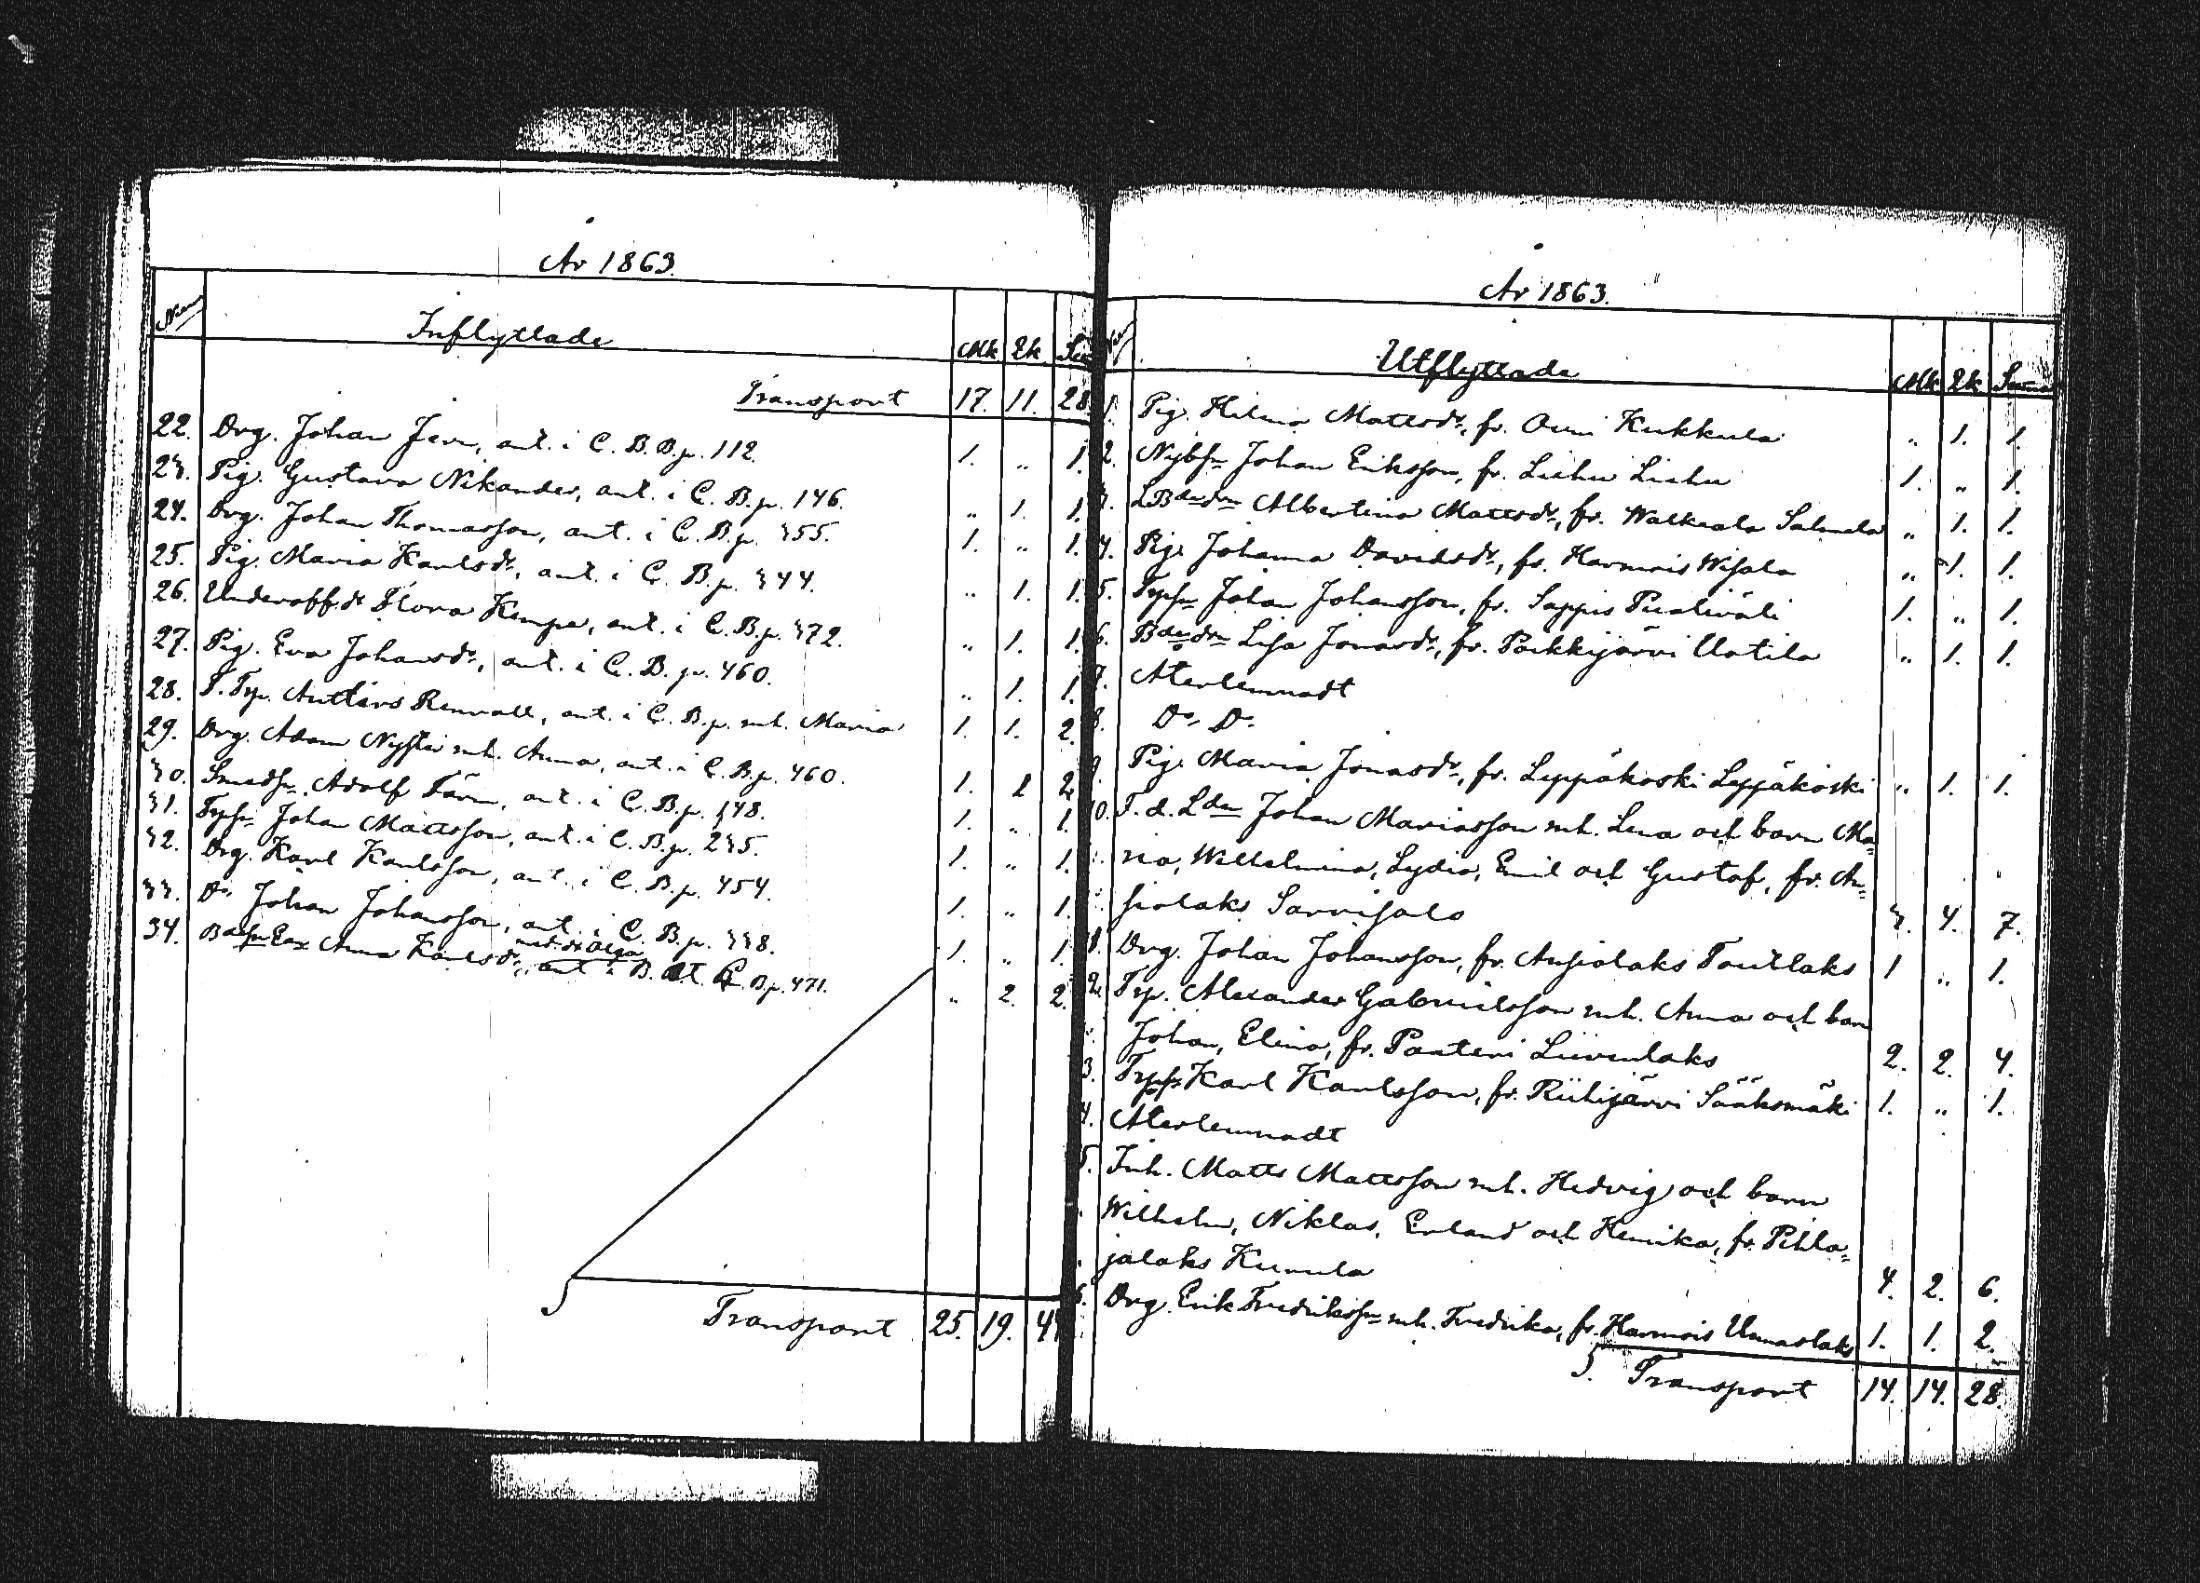 År 1863.
Nro Inflyttade Mk Qk Sum
Transport 17. 11. 28
22. Drg. Johan Jern, ant. i C. B. B. p. 112. 1. „ 1.
23. Pig. Gustava Nikander, ant. i C. B. p. 146. „ 1. 1.
24. Drg. Johan Thomasson, ant. i C. B. p. 355. 1. „ 1.
25. Pig. Maria Karlsdr, ant. i C. B. p. 344. „ 1. 1.
26. Underoff. dr Flora Kempe, ant. i C. B. p. 372. „ 1. 1.
27. Pig. Eva Johansdr, ant. i C. B. p. 460. „ 1. 1.
28. Trp. Anttars Renvall, ant. i C. B. p. mh. Maria 1. 1. 2.
29. Drg. Adam mh. Anna, ant. i C. B. p. 460. 1. 1 2
30. Smedsn Adolf Färm, ant. i C. B. p. 148. 1. „ 1.
31. Trpsn Johan Mattsson, ant. i C. B. p. 235. 1. „ 1.
32. Drg. Karl Karlsson, ant. i C. B. p. 454. 1. „ 1.
33. Do Johan Johansson, ant. i C. B. p. 338. 1. „ 1.
med dr Olga
34. Anna Karlsdr, ant. i B. C. B. p. 471. „ 2. 2.
Transport 25. 19. 44
År 1863.
Utflyttade Mk Qk Suma
1. Pig. Hilma Mattsdr, fr. Orni Kukkula „ 1. 1.
2. Nybsn Johan Eriksson, fr. Liehu Liehu 1. „ 1.
3. LBdedtr Albertina Mattsdr, fr. Walkeala Salmela „ 1. 1.
4. Pig. Johanna Davidsdr, fr. Harmois Wihala „ 1. 1.
5. Trpsn Johan Johansson, fr. Sappis Pualiväli 1. „ 1.
6. Bdedtr Lisa Jonasdr, fr. Paikkijärvi Uotila „ 1. 1.
7. Återlemnadt
8. Do Do
9. Pig. Maria Jonasdr, fr. Leppäkoski Leppäkoski „ 1. 1.
10. F. d. Ldn Johan Mariasson mh. Lena och barn Ma=
ria, Wilhelmina, Lydia, Emil och Gustaf, fr. An=
sialaks Sarvisalo 3. 4. 7.
1. Drg. Johan Johansson, fr. Ansialaks Toutlaks 1 „ 1.
2. Trp. Alexander Gabrielsson mh. Anna och barn
Johan, Elina, fr. Panteri Liivenlaks 2. 2. 4.
3. Trpsn Karl Karlsson, fr. Riihijärvi Sääksmäki 1. „ 1.
4. Återlemnadt
5. Inh. Matts Mattsson mh. Hedvig och barn
Wilhelm, Niklas, Erland och Henrika, fr. Pihla=
jalaks Kumula 4. 2. 6.
6. Drg. Erik Fredriksson mh. Fredrika, fr. Harmois Unnaslaks 1. 1. 2.
Transport 14. 14. 28.